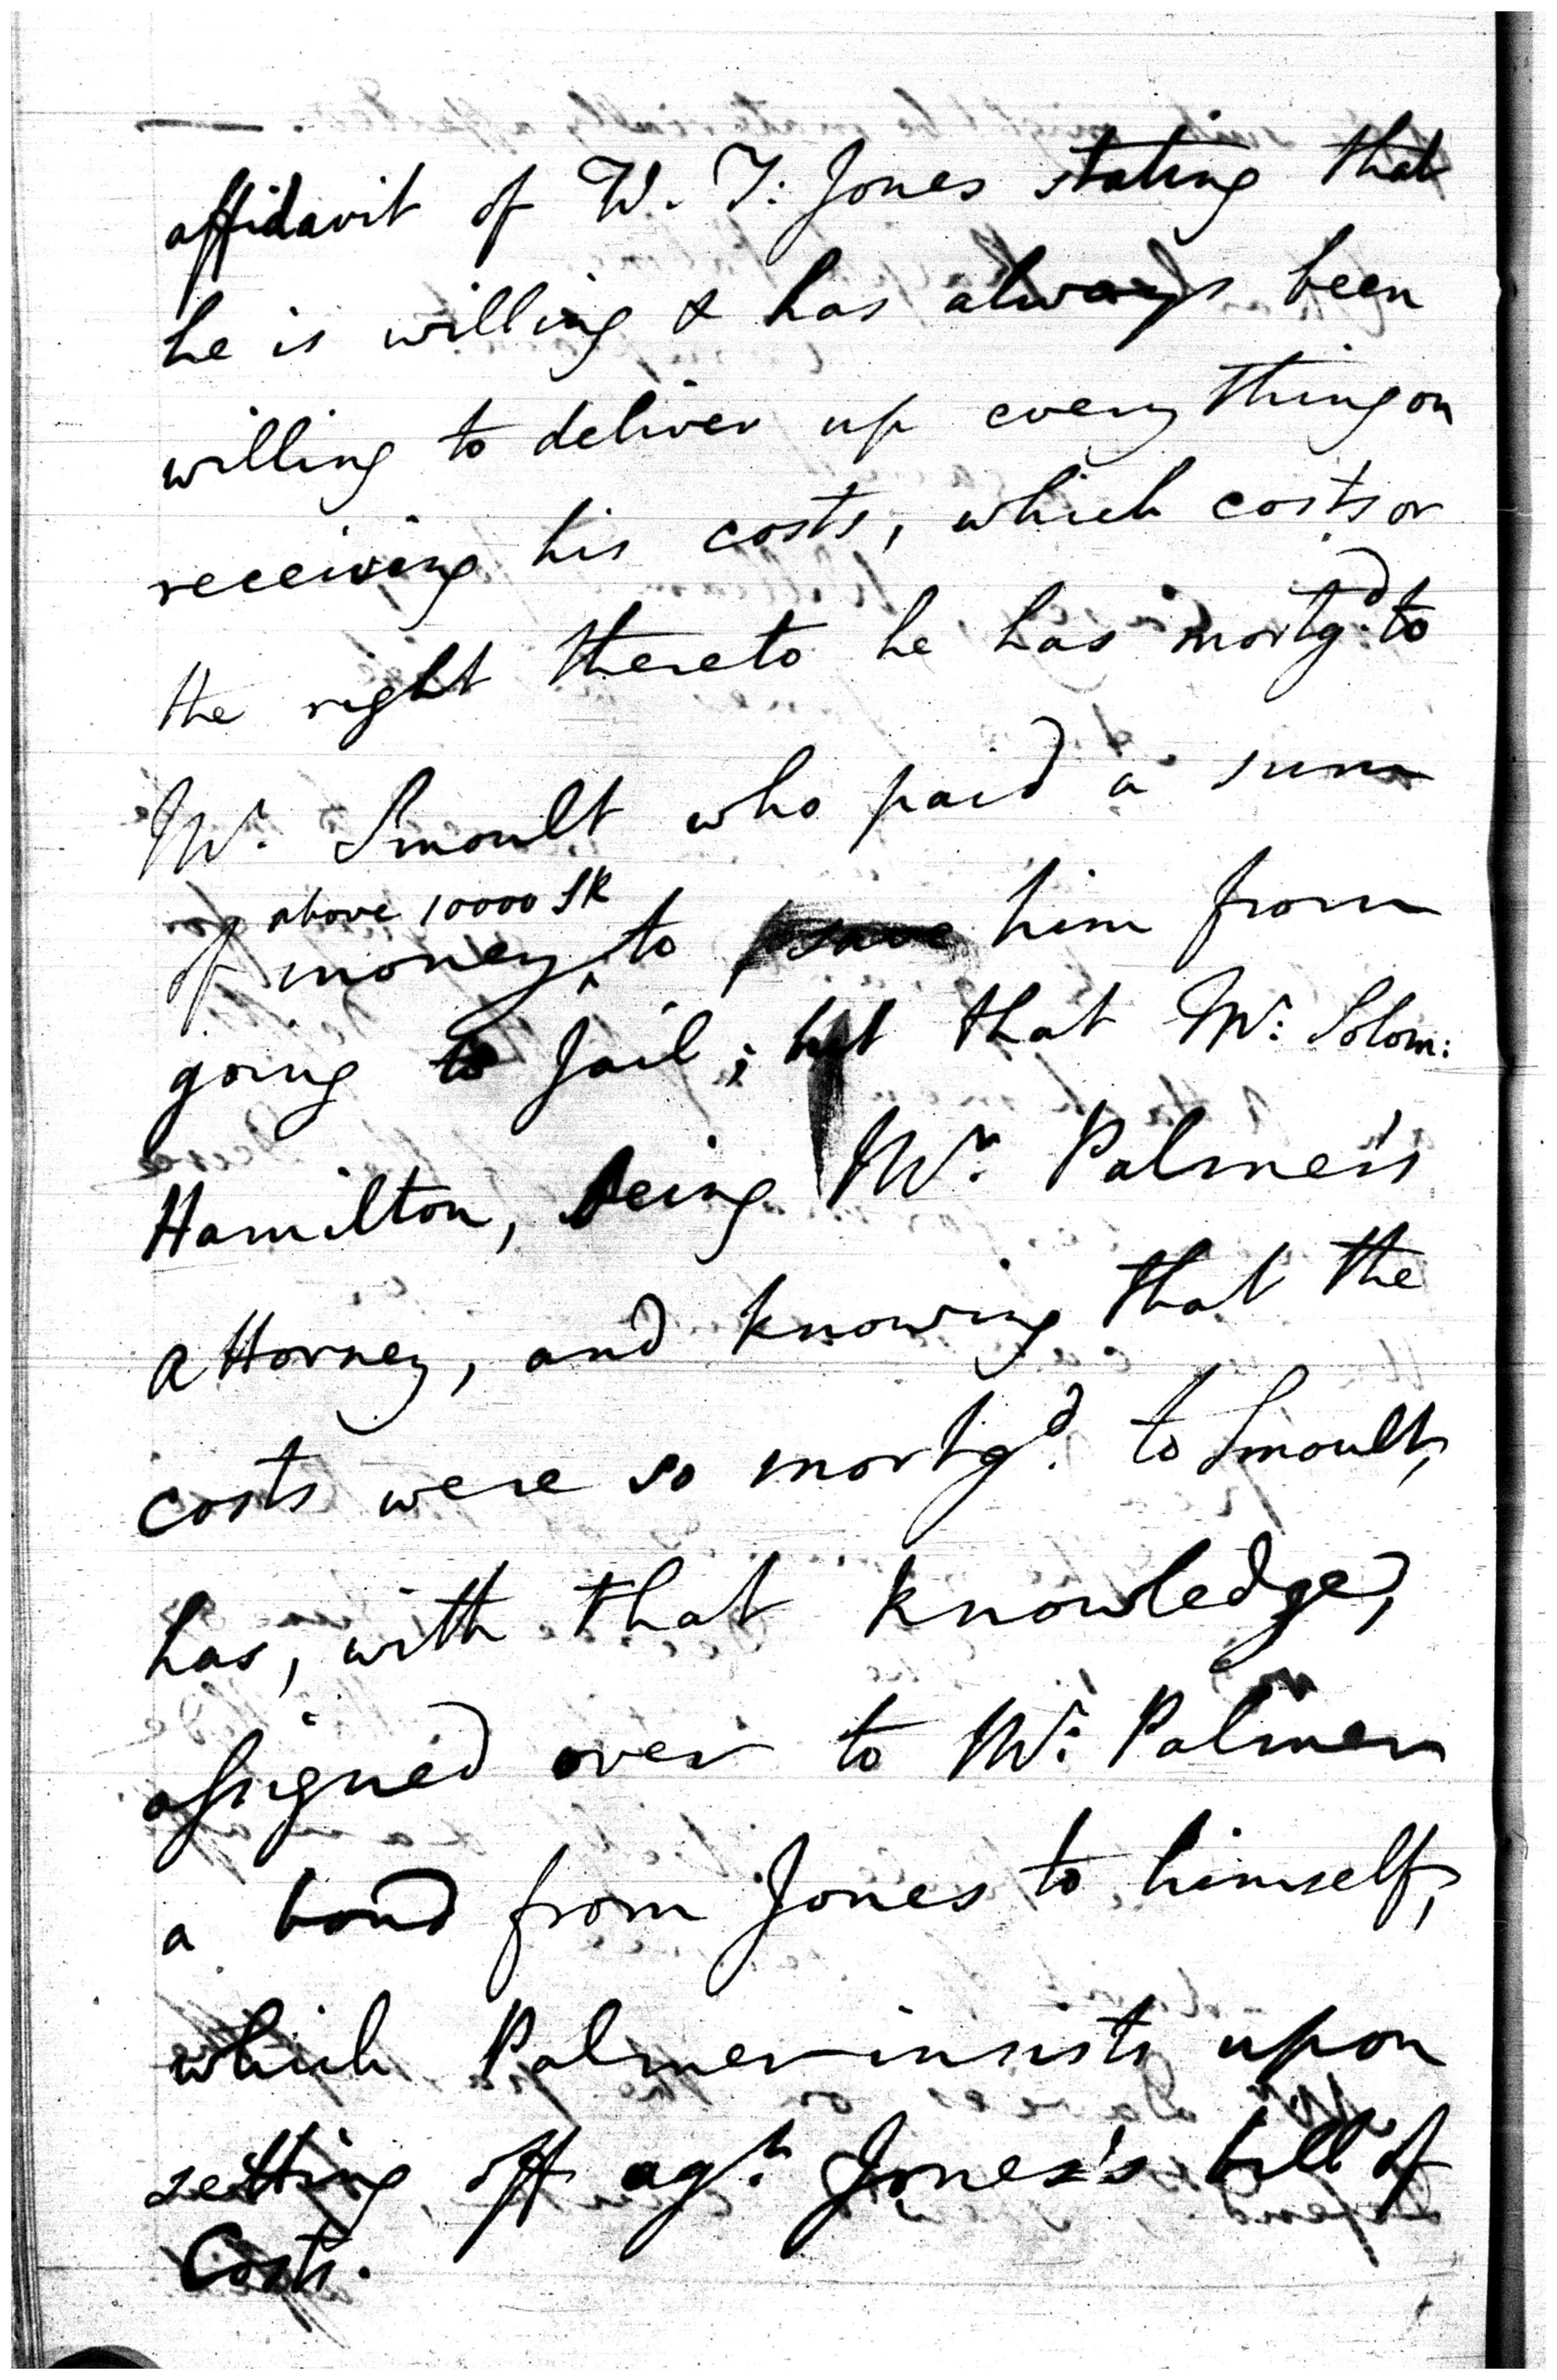 affidavit of W. T: Jones stating that
he is willing & has always been
willing to deliver up every thing on
receiving his costs, which costs or
the right thereto he has mortg.d to
Mr. Smoult who paid a sum
above 10000 SR
of money ^ to save him from
going to Jail; but that Mr: Solom:
Hamilton, being Mr. Palmer's
attorney, and knowing that the
costs were so mortgd. to Smoult,
has, with that knowledge,
assigned over to Mr: Palmer
a bond from Jones to himself,
which Palmer insists upon
setting off agt. Jones's bill of
Costs.